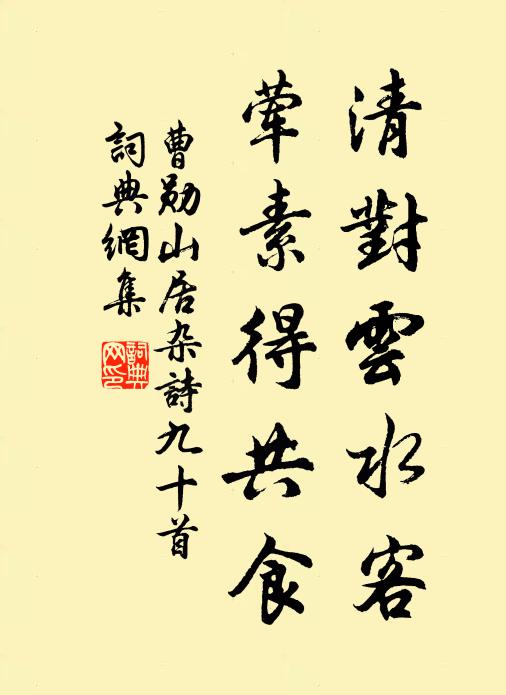 清對雲水客
葷素得共食
曹勛山居杂詩九十首
詞典網集
詞典网印